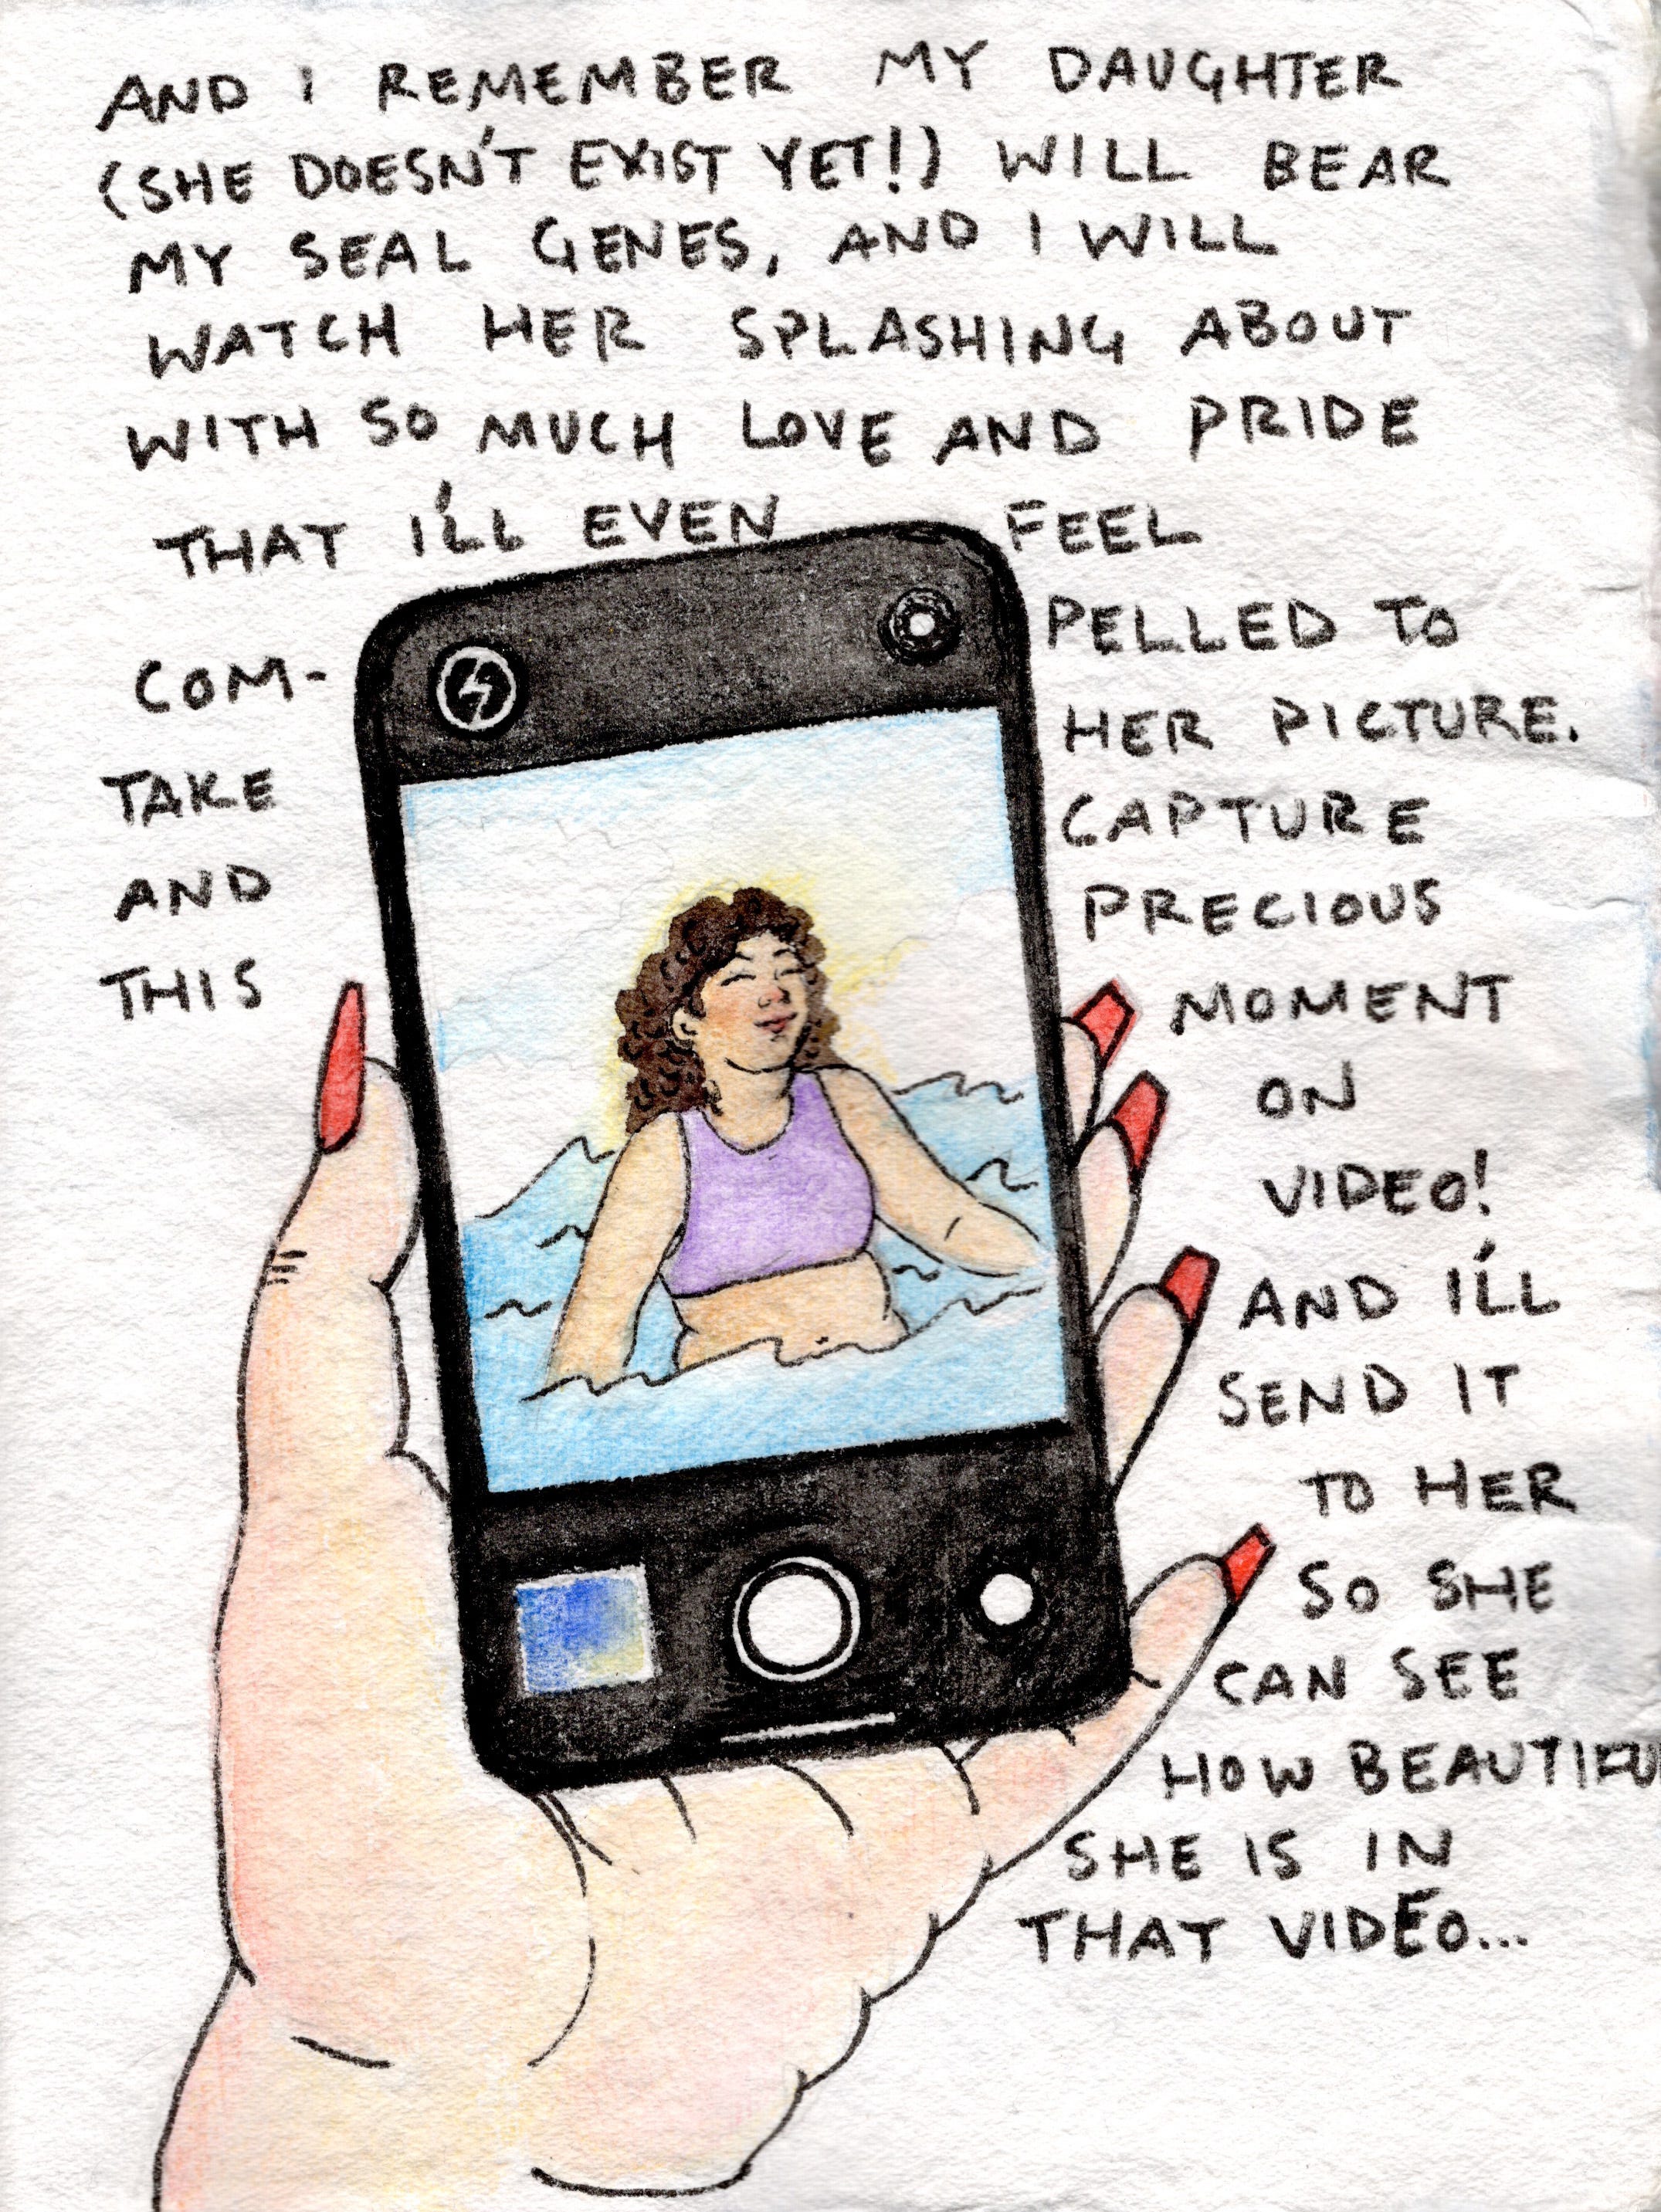 AND I REMEMBER MY DAUGHTER
(SHE DOESN'T EXIST YET!) WILL BEAR
MY SEAL GENES, AND I WILL
WATCH HER SPLASHING ABOUT
WITH SO MUCH LOVE AND PRIDE
THAT I'LL EVEN FEEL
COM- PELLED TO
TAKE HER PICTURE.
AND CAPTURE
THIS PRECIOUS
MOMENT
ON
VIDEO!
AND I'LL
SEND IT
TO HER
SO SHE
CAN SEE
HOW BEAUTIFU
SHE IS IN
THAT VIDEO...